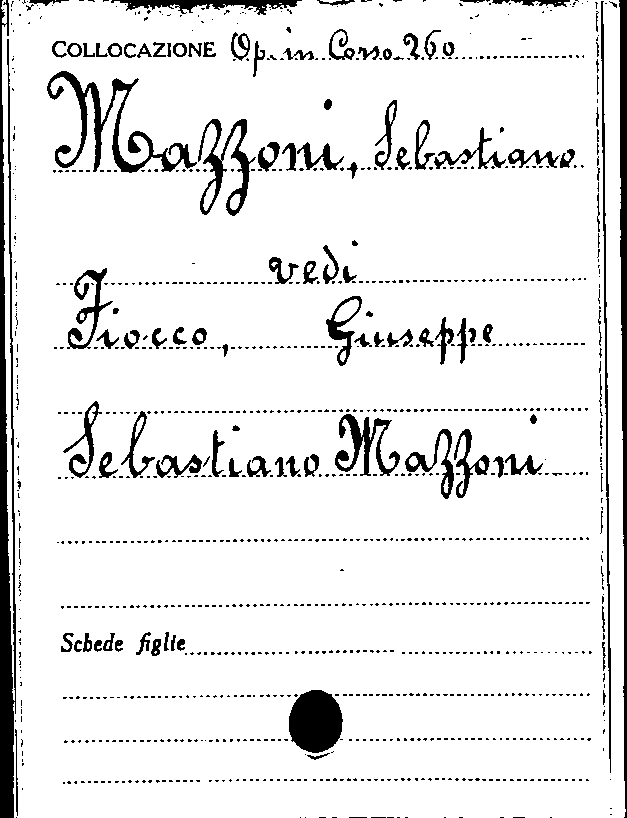 COLLOCAZIONE Op. in Corso 260
Mazzoni, Sebastiano
vedi
Fiocco, Giuseppe
Sebastiano Mazzoni
Schede figlie